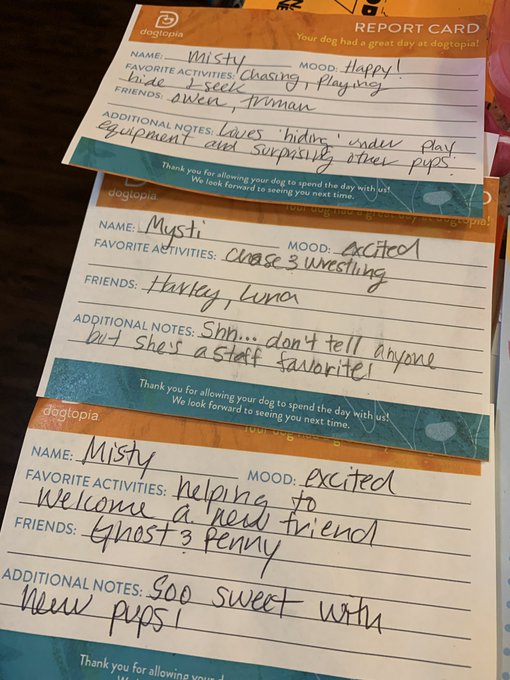 dogtopia
REPORT CARD
Your dog had a great day at dogtopia!
NAME: Misty MOOD: Happy!
FAVORITE ACTIVITIES: Chasing, playing
hide & seek
FRIENDS: Owen, Truman
ADDITIONAL NOTES: Loves 'hiding' under play
equipment and surprising other pups.
Thank you for allowing your dog to spend the day with us!
We look forward to seeing you next time.
dogtopia
NAME: Mysti MOOD: excited
FAVORITE ACTIVITIES: chase & wrestling
FRIENDS: Harley, Luna
ADDITIONAL NOTES: Shh... don't tell anyone
but she's a staff favorite!
Thank you for allowing your dog to spend the day with us!
We look forward to seeing you next time.
dogtopia
NAME: Misty MOOD: excited
FAVORITE ACTIVITIES: helping to
welcome a new friend
FRIENDS: Ghost & Penny
ADDITIONAL NOTES: Soo sweet with
new pups!
Thank you for allowing your